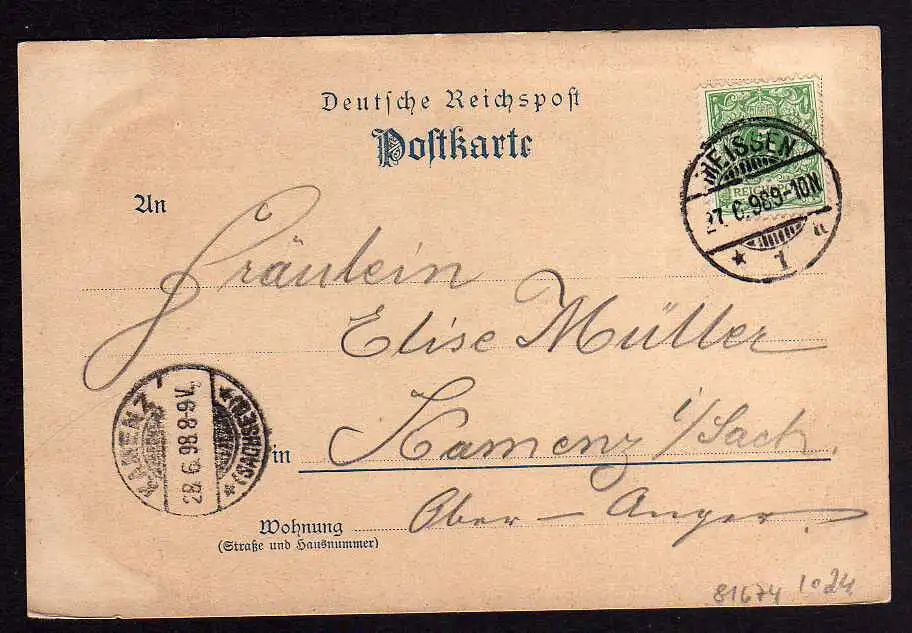 Deutsche Reichspost
Postkarte
REICHS
MEISSEN
27.6.98 9-10N
* 1 n
An
Fräulein
Elise Müller
in Kamenz i/Sach.
KAMENZ
28.6.98 8-9V.
*(SACHSEN)*
Wohnung
(Straße und Hausnummer)
Ober-Anger.
81674 1024